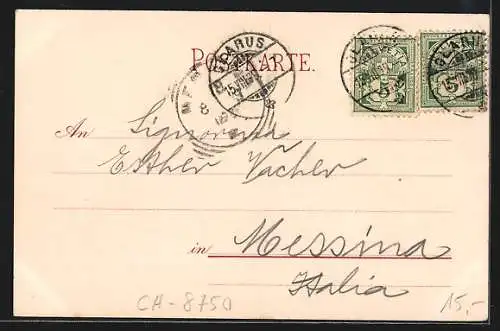 POSTKARTE.
GLARUS
GLARUS
GLARUS
15.VIII
5
5
An Signorina
Esther Vacher
in Messina
Italia
CH-8750
15,-